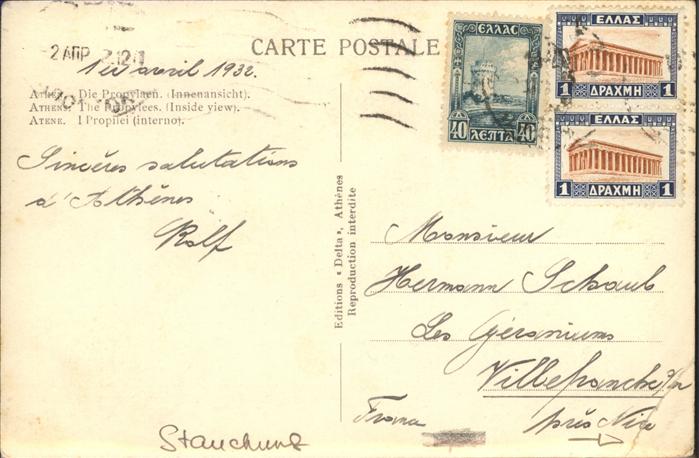 CARTE POSTALE
2 ΑΠΡ
1er avril 1932.
ATHEN. Die Propylaën. (Innenansicht).
ATHENES. The Propylees. (Inside view).
ATENE. I Propilei (interno).
Sincères salutations
d'Athènes
Rolf
Editions « Delta », Athènes
Reproduction interdite
ΕΛΛΑΣ
40 ΛΕΠΤΑ 40
ΕΛΛΑΣ
1 ΔΡΑΧΜΗ 1
ΕΛΛΑΣ
1 ΔΡΑΧΜΗ 1
Monsieur
Hermann Schaub
Les Géraniums
Villefranche s/m
près Nice
France